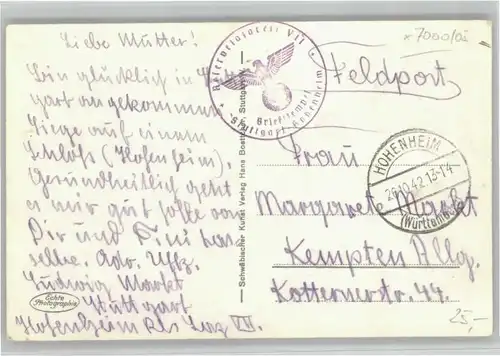 Liebe Mutter!
Bin glücklich in Stutt
gart angekommen
Liege auf einem
Schloß (Hohenheim).
Gesundheitlich geht
es mir gut hoffe von
Dir und Fini das
selbe. Adr. Uffz.
Ludwig Markt
Stuttgart
Hohenheim Res Laz VII.
Echte
Photographie
Schwäbischer Kunst Verlag Hans Boettcher, Stuttgart
Reservelazarett VII
Briefstempel
Stuttgart-Hohenheim
x 7000/02
Feldpost
HOHENHEIM
26.10.42.13-14
(Württemb.)
Frau
Margarete Markt
Kempten Allg.
Kotternerstr. 44.
25,-